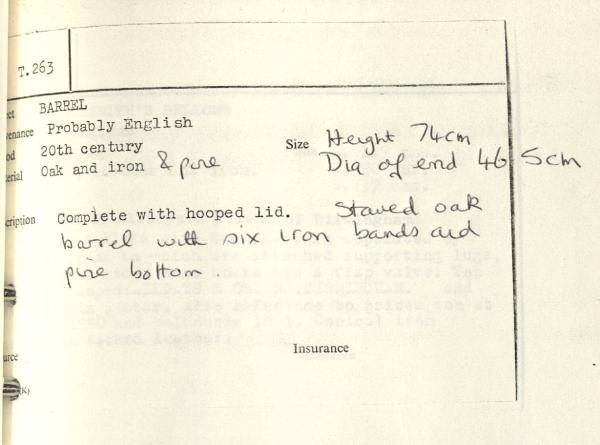 T.263
ect BARREL
venance Probably English
od 20th century
Size Height 74cm
erial Oak and iron & pine
Dia of end 46.5cm
cription Complete with hooped lid. Staved oak
barrel with six iron bands and
pine bottom
Insurance
urce
(K)